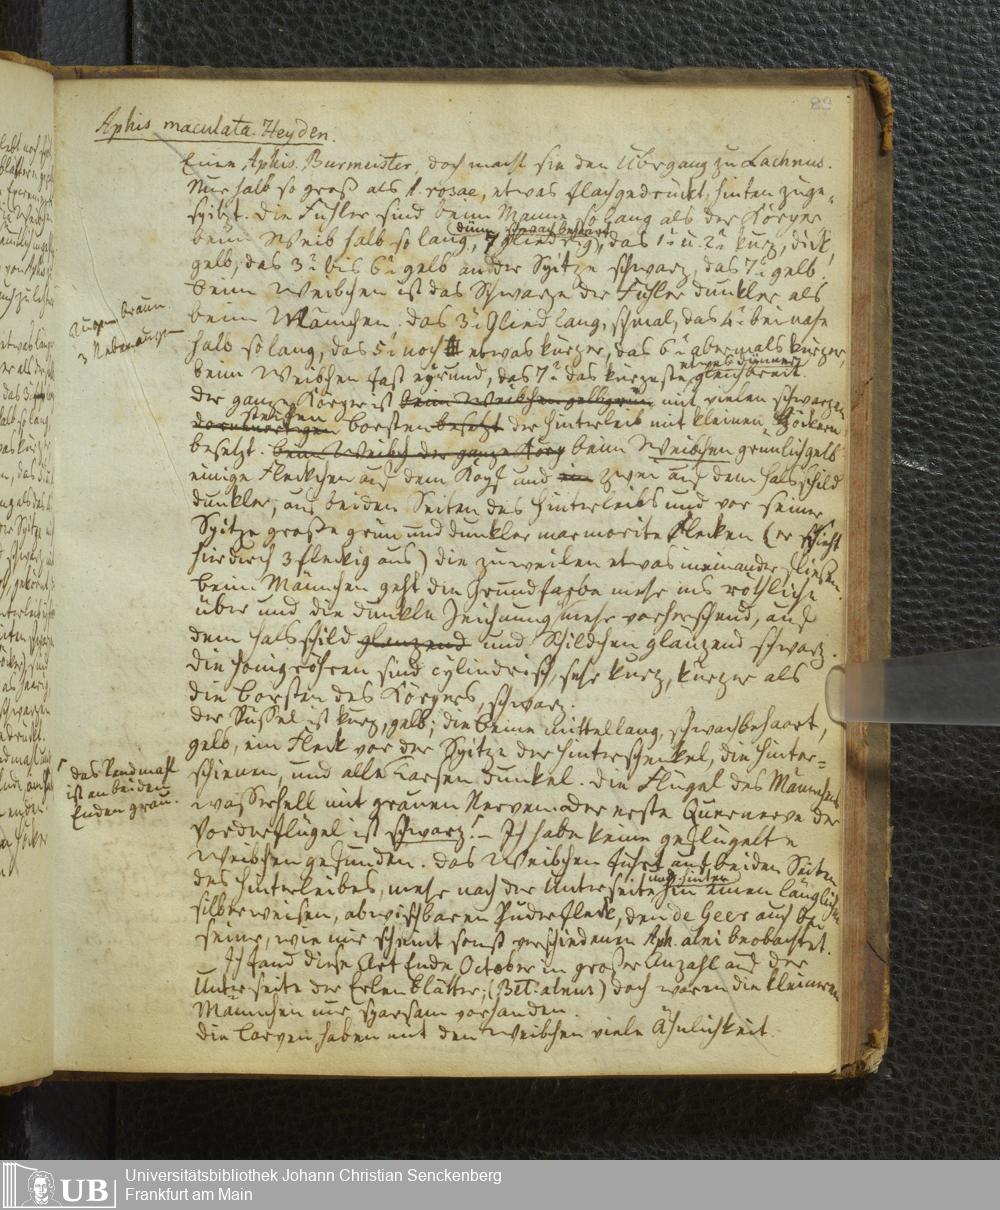 83
Aphis maculata. Heyden.
Eine Aphis. Burmeister, doch macht sie den Übergang zu Lachnus.
Nur halb so groß als A. rosae, etwas flachgedrückt, hinten zuge-
spitzt. Die Fühler sind beim Manne so lang als der Körper
beim Weib halb so lang, (dünn, schwach behaart) 7 gliedrig, das 1e u. 2e kurz, dick,
gelb, das 3e bis 6e gelb an der Spitze schwarz, das 7e gelb.
Beim Weibchen ist das Schwarze der Fühler dunkler als
beim Männchen. das 3e Glied lang, schmal, das 4e beinahe
halb so lang, das 5e noch etwas kürzer, das 6e abermals kürzer,
beim Weibchen fast eyrund, das 7e das kürzeste, etwas dünner gleichbreit.
Der ganze Körper ist beim Weibchen gelbgrün mit vielen schwarzen
dornenartigen steifen Borsten besetzt der Hinterleib mit kleinen Höckern
besetzt. beim Weibch der ganze Körp beim Weibchen grünlichgelb
einige Fleckchen auf dem Kopf und ein zwei auf dem Halsschild
dunkler, auf beiden Seiten des Hinterleibs und vor seiner
Spitze große grün und dunkler marmorirte Flecken (er sieht
hierdurch 3 fleckig aus) die zuweilen etwas ineinander fließen.
Beim Männchen geht die Grundfarbe mehr ins röthliche
über und die dunkle Zeichnung mehr vorherrschend, auf
dem Halsschild glänzend und Schildchen glänzend schwarz.
Die Honigröhren sind cylindrisch, sehr kurz, kürzer als
die Borsten des Körpers, schwarz.
Der Rüssel ist kurz, gelb; die Beine mittellang, schwach behaart,
gelb, ein Fleck vor der Spitze der Hinterschenkel, die Hinter-
schienen, und alle Tarsen dunkel. Die Flügel des Männchens
wasserhell mit grauen Nerven. der erste Quernerve der
Vorderflügel ist schwarz! – Ich habe keine geflügelte
Weibchen gefunden. Das Weibchen führt auf beiden Seiten
des Hinterleibes, mehr nach der Unterseite und hinten einen länglichen
silberweisen, abwischbaren Puderfleck, den de Geer auch bei
seiner, wie mir scheint sonst verschiedenen Aph. alni beobachtet.
Ich fand diese Art Ende October in großer Anzahl auf der
Unterseite der Erlenblätter; (Bet. alnus) doch waren die kleineren
Männchen nur sparsam vorhanden.
Die Larven haben mit den Weibchen viele Ähnlichkeit.
Augen braun.
3 Nebenaugen
das Randmahl
ist an beiden
Enden grau.
UB
Universitätsbibliothek Johann Christian Senckenberg
Frankfurt am Main